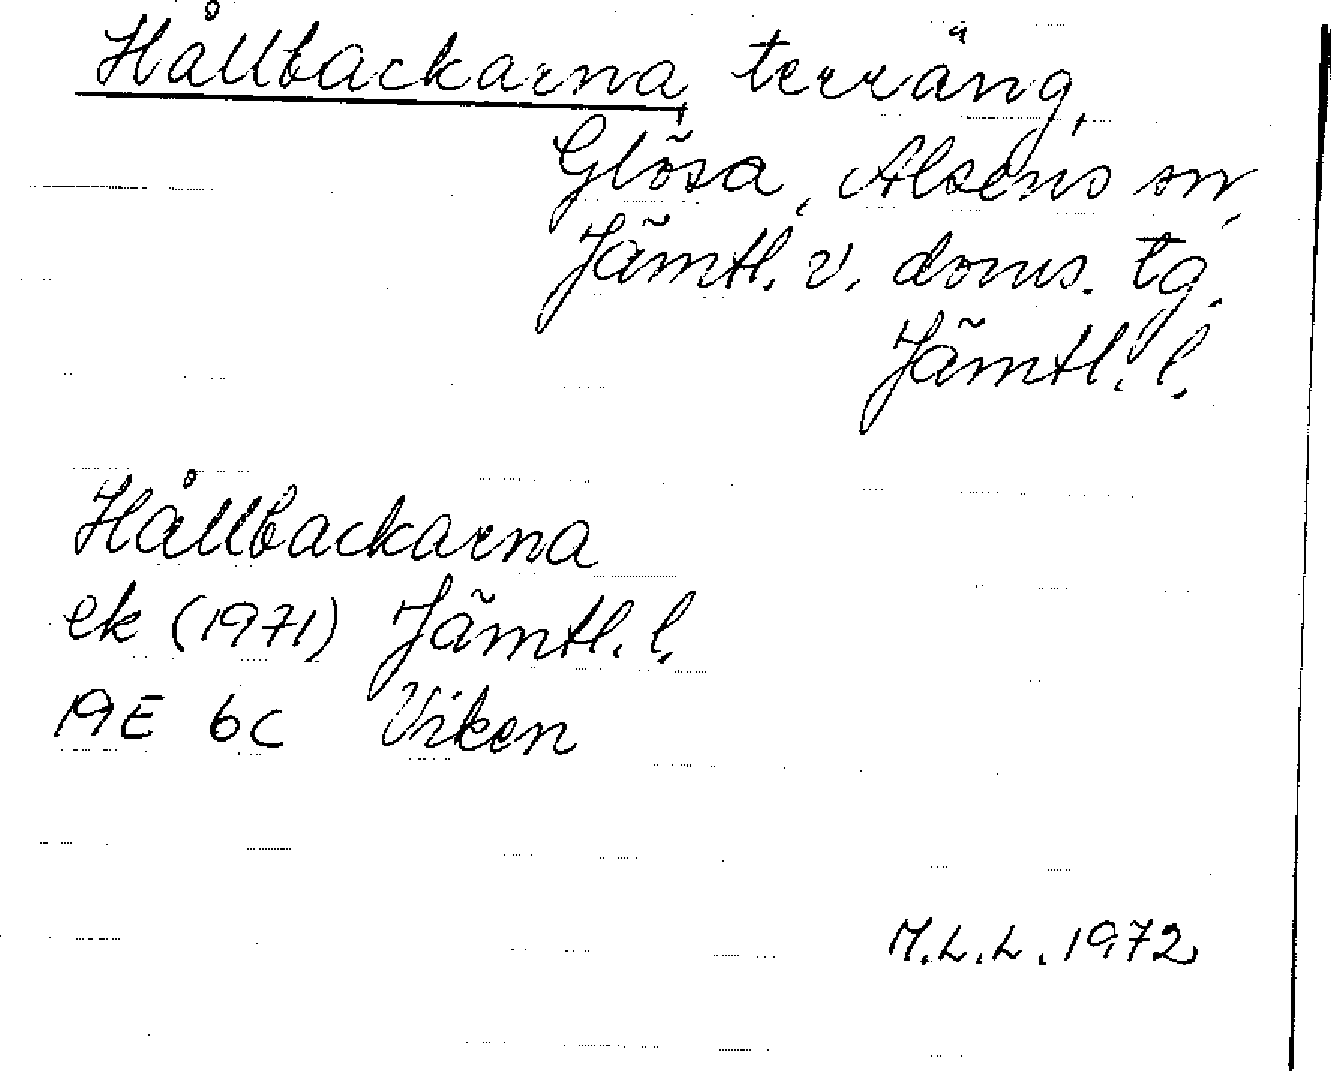 Hållbackarna, terräng,
Glösa, Alsens sn,
Jämtl. v. doms. tg.
Jämtl. l.
Hållbackarna
ek (1971) Jämtl. l.
19E 6C Viken
M.L.L. 1972